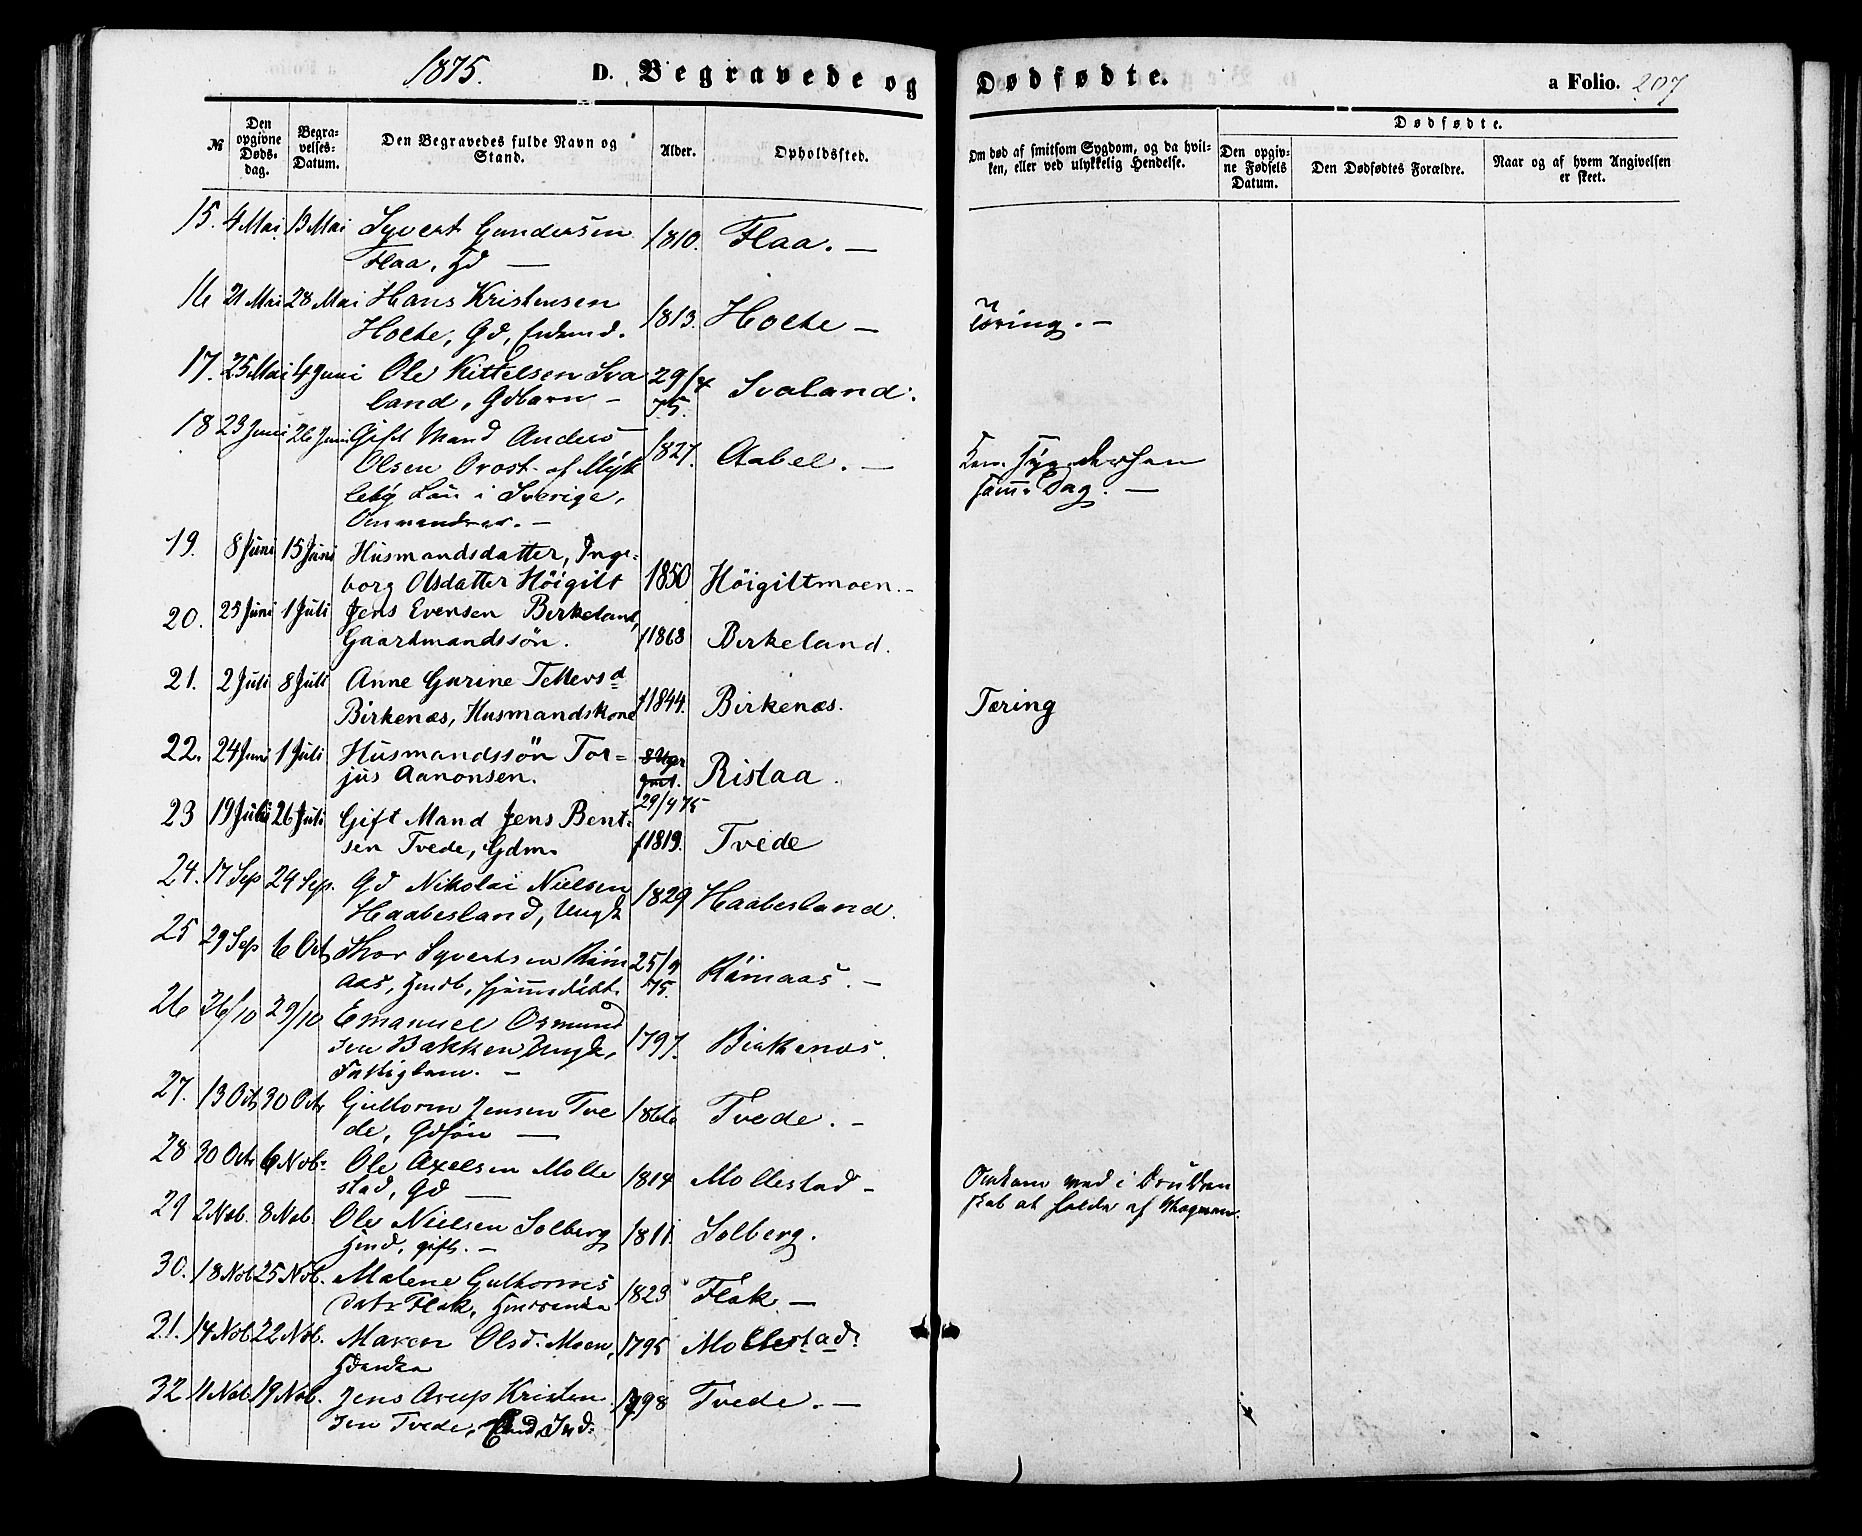 1875. D. Begravede og Dødfødte. a Folio. 207
№ Den opgivne Døds-dag. Begra-velses-Datum. Den Begravedes fulde Navn og Stand. Alder. Opholdssted. Om død af smitsom Sygdom, og da hvil-ken, eller ved ulykkelig Hendelse. Dødfødte. Den opgiv-ne Fødsels Datum. Den Dødfødtes Forældre. Naar og af hvem Angivelsen er skeet.
15. 4 Mai 13 Mai Syvert Gundersen 1810. Flaa. —
Flaa, —
16 21 Mai 28 Mai Hans Kristensen 1813. Holte — Tæring. —
Holte, Gd,
17. 25 Mai 4 Juni Ole Kittelsen Sva 29/4 Svaland.
land, Gdbarn — 75.
18 23 Juni 26 Juni Gift Mand Anders 1827. Aabel. —
Olsen af
i Sverige, samme Dag. —
19. 8 Juni 15 Juni Husmandsdatter, Inge-
borg Olsdatter Höigilt 1850 Höigiltmoen. -
20. 25 Juni 1 Juli Jens Evensen Birkeland,
Gaardmandssön. f 1868 Birkeland.
21. 2 Juli 8 Juli Anne Gurine Tellevsd
Birkenæs, Husmandskone f 1844. Birkenæs. Tæring
22. 24 Juni 1 Juli Husmandssön Tor-
jus Aanonsen. 29/4 75 Ristaa.
23 19 Juli 26 Juli Gift Mand Jens Bent-
sen Tvede, Gdm. f 1819. Tvede
24. 17 Sep 24 Sep. Gd Nikolai Nielsen 1829 Haabesland.
Haabesland, Ungk
25 29 Sep 6 Oct Thor Syvertsen 25/9
aas, 75.
26 26/10 29/10 Emanuel Osmund
sen Bakken Ungk, 1797. Birkenæs.
Fattiglem. —
27. 13 Octr 30 Octr Guttorm Jensen Tve 1866 Tvede. —
de, Gdsøn —
28 30 Octr 6 Nob. Ole Axelsen Molle 1814 Mollestad - Omkom ved i
stad, Gd — skab at falde af Vognen.
29 2 Nob. 8 Nob. Ole Nielsen Solberg 1811. Solberg.
gift. —
30. 18 Nob 25 Nob. Malene Guttorms 1823 Flak —
datr Flak,
31. 14 Nob 22 Nob. Maren Olsd. Moen, 1795 Mollestad.
32 11 Nob 19 Nob. Jens Arup Kristen 1798 Tvede. —
sen Tvede,